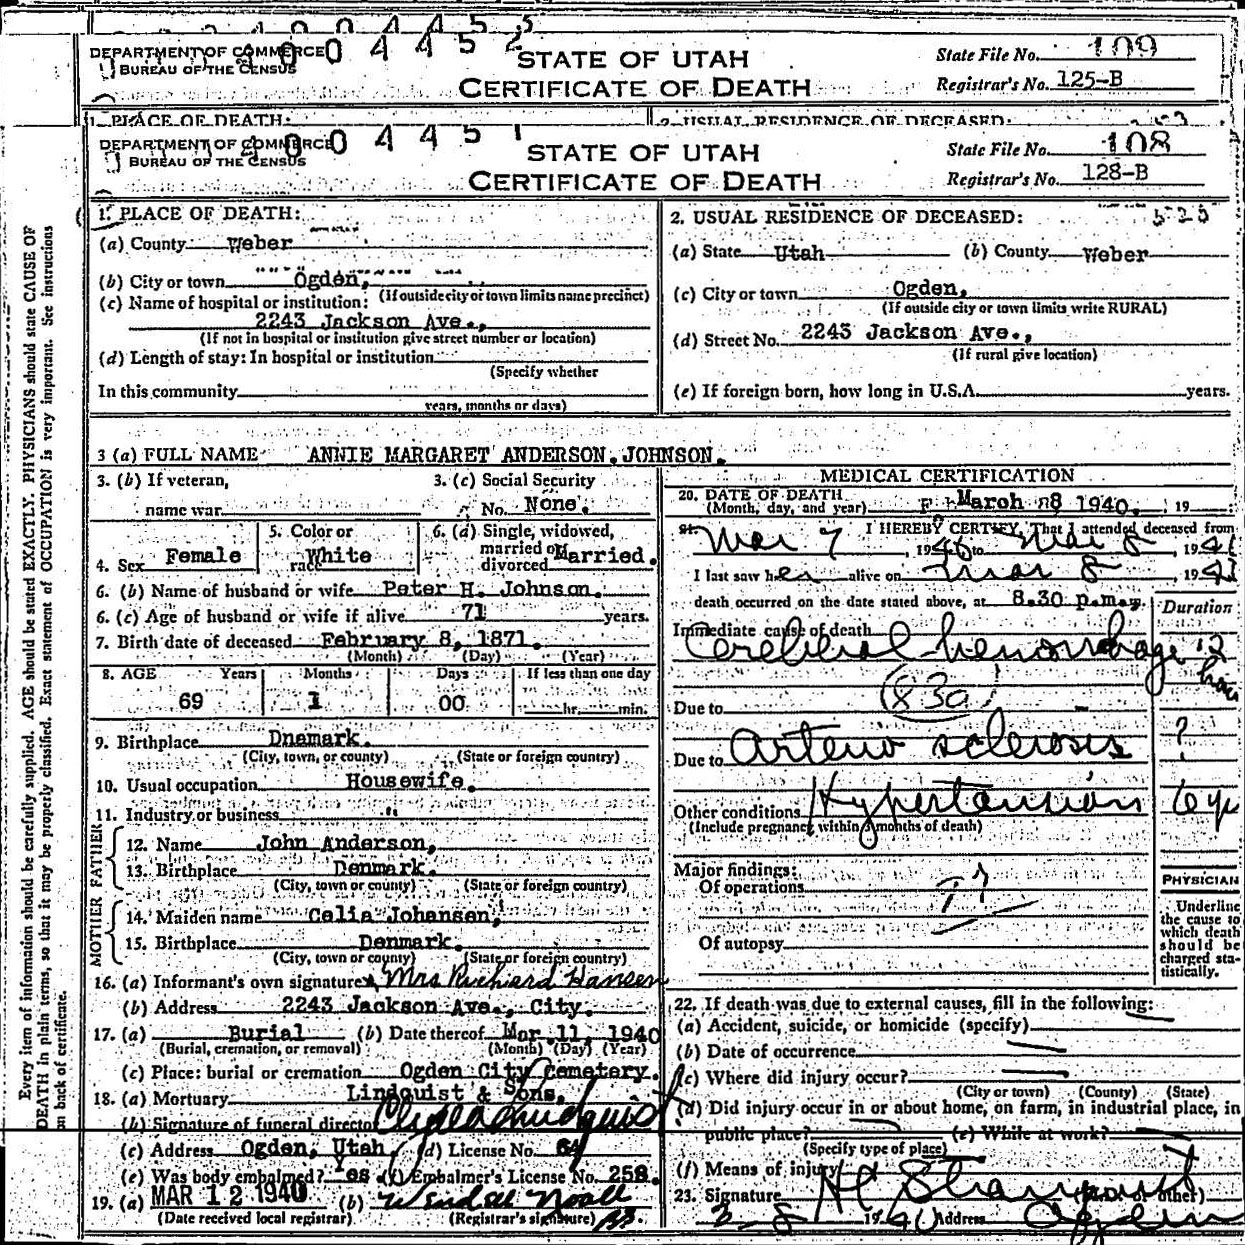 004452
DEPARTMENT OF COMMERCE
BUREAU OF THE CENSUS
STATE OF UTAH
CERTIFICATE OF DEATH
State File No. 109
Registrar's No. 125-B
1. PLACE OF DEATH:
2. USUAL RESIDENCE OF DECEASED:
004451
DEPARTMENT OF COMMERCE
BUREAU OF THE CENSUS
STATE OF UTAH
CERTIFICATE OF DEATH
State File No. 108
Registrar's No. 128-B
Every item of information should be carefully supplied. AGE should be stated EXACTLY. PHYSICIANS should state CAUSE OF
DEATH in plain terms, so that it may be properly classified. Exact statement of OCCUPATION is very important. See instructions
on back of certificate.
1. PLACE OF DEATH:
(a) County Weber
(b) City or town Ogden,
(If outside city or town limits name precinct)
(c) Name of hospital or institution:
2243 Jackson Ave.,
(If not in hospital or institution give street number or location)
(d) Length of stay: In hospital or institution
(Specify whether
In this community
years, months or days)
2. USUAL RESIDENCE OF DECEASED:
(a) State Utah (b) County Weber
(c) City or town Ogden,
(If outside city or town limits write RURAL)
(d) Street No. 2243 Jackson Ave.,
(If rural give location)
(e) If foreign born, how long in U.S.A. years.
3 (a) FULL NAME ANNIE MARGARET ANDERSON JOHNSON.
3. (b) If veteran,
name war
3. (c) Social Security
No. None.
4. Sex Female
5. Color or
race White
6. (d) Single, widowed,
married or
divorced Married.
6. (b) Name of husband or wife Peter H. Johnson.
6. (c) Age of husband or wife if alive 71 years.
7. Birth date of deceased February 8, 1871.
(Month) (Day) (Year)
8. AGE Years Months Days If less than one day
69 1 00 hr. min.
9. Birthplace Dnemark.
(City, town, or county) (State or foreign country)
10. Usual occupation Housewife.
11. Industry or business "
FATHER
12. Name John Anderson,
13. Birthplace Denmark.
(City, town or county) (State or foreign country)
MOTHER
14. Maiden name Celia Johansen,
15. Birthplace Denmark.
(City, town or county) (State or foreign country)
16. (a) Informant's own signature Mrs Richard Hansen
(b) Address 2243 Jackson Ave., City.
17. (a) Burial (b) Date thereof Mar. 11, 1940
(Burial, cremation, or removal) (Month) (Day) (Year)
(c) Place: burial or cremation Ogden City Cemetery.
18. (a) Mortuary Lindquist & Sons.
(b) Signature of funeral director
(c) Address Ogden, Utah (d) License No. 64
(e) Was body embalmed? Yes. (f) Embalmer's License No. 258.
19. (a) MAR 12 1940 (b) Wendell Noall
(Date received local registrar) (Registrar's signature)
MEDICAL CERTIFICATION
20. DATE OF DEATH
(Month, day, and year) March 8 1940. , 19
21. I HEREBY CERTIFY, That I attended deceased from
Mar 7, 1940 to Mar 8, 1940
I last saw her alive on Mar 8, 1940
death occurred on the date stated above, at 8.30 p.m.
Duration
Immediate cause of death
Cerebral hemorrhage 12
hour
(83a)
Due to
Due to Arterio sclerosis ?
Other conditions Hypertension 6 yr
(Include pregnancy within 3 months of death)
Major findings:
Of operations
Of autopsy
PHYSICIAN
Underline
the cause to
which death
should be
charged sta-
tistically.
22. If death was due to external causes, fill in the following:
(a) Accident, suicide, or homicide (specify)
(b) Date of occurrence
(c) Where did injury occur?
(City or town) (County) (State)
(d) Did injury occur in or about home, on farm, in industrial place, in
public place? (e) While at work?
(Specify type of place)
(f) Means of injury
23. Signature (M.D. or other)
3-8 1940 Address Ogden